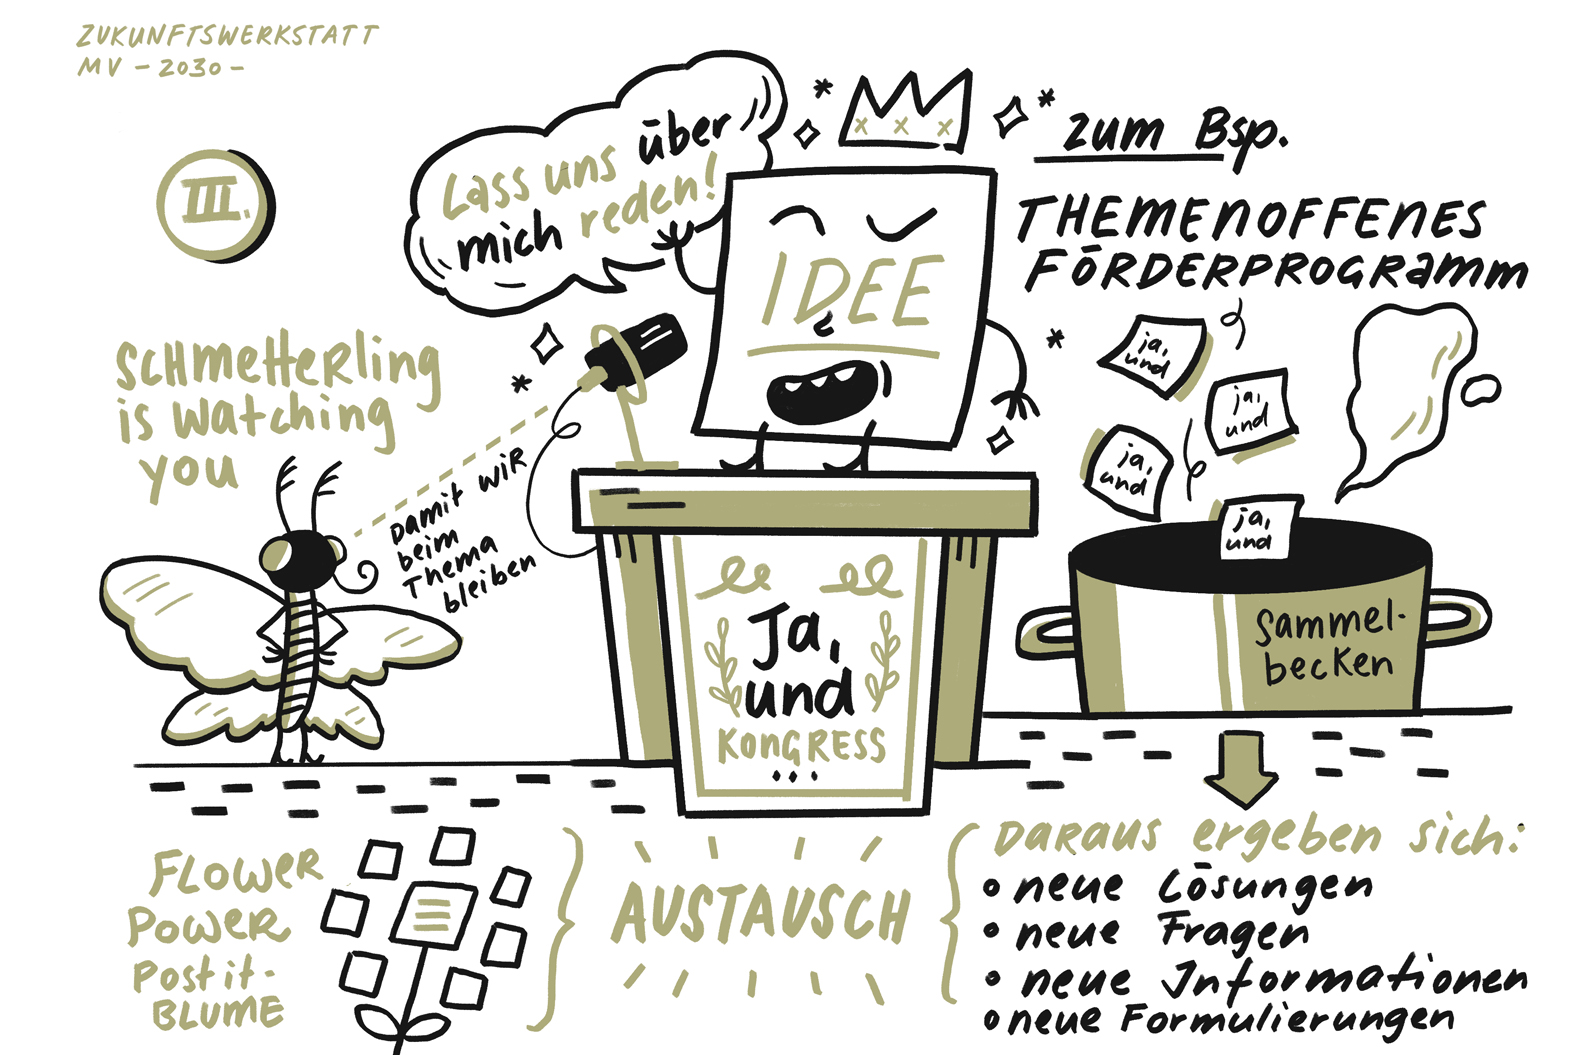 ZUKUNFTSWERKSTATT
MV - 2030 -
III.
Lass uns über
mich reden!
zum Bsp.
THEMENOFFENES
FÖRDERPROGRAMM
IDEE
SCHMETTERLING
is watching
you
Damit wir
beim
Thema
bleiben
ja,
und
ja,
und
ja,
und
ja,
und
Sammel-
becken
Ja,
und
KONGRESS
...
FLOWER
POWER
Postit-
BLUME
AUSTAUSCH
DARAUS ergeben sich:
• neue Lösungen
• neue Fragen
• neue Informationen
• neue Formulierungen